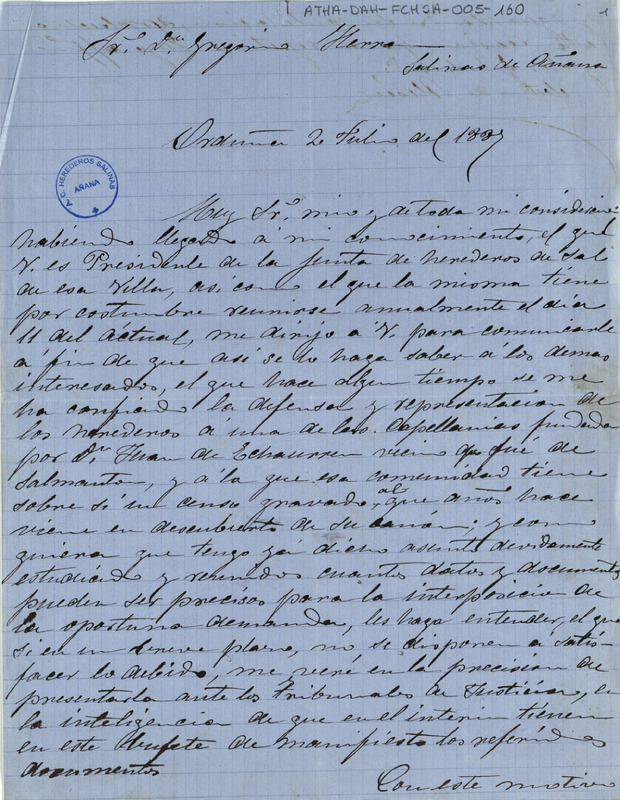 ATHA-DAH-FCHSA-005-160
1
Sr. Dn. Gregorio Herran
Salinas de Añana
Orduña 2 Julio del 1887
A.C. HEREDEROS SALINAS
AÑANA
Muy Sr. mio y de toda mi consideracion:
habiendo llegado á mi conocimiento, el que
V. es Presidente de la Junta de herederos de Sal
de esa Villa, asi como el que la misma tiene
por costumbre reunirse anualmente el dia
11 del actual, me dirijo á V. para comunicarle
á fin de que asi se lo haga saber á los demas
interesados, el que hace algun tiempo se me
ha confiado la defensa y representacion de
los herederos á una de las Capellanias fundada
por Dn. Juan de Echaurren vecino que fué de
Salmanton, y á la que esa comunidad tiene
sobre sí un censo gravado, al que años hace
viene en descubierto de su canon; y como
quiera que tengo ya dicho asunto devidamente
estudiado y reunidos cuantos datos y documentos
pueden ser precisos para la interposicion de
la oportuna demanda, les haga entender, el que
si en un breve plazo, no se disponen á satis-
facer lo debido, me veré en la precision de
presentarla ante los Tribunales de Justicia, en
la inteligencia de que en el interin tienen
en este Bufete de manifiesto los referidos
documentos
Con este motivo